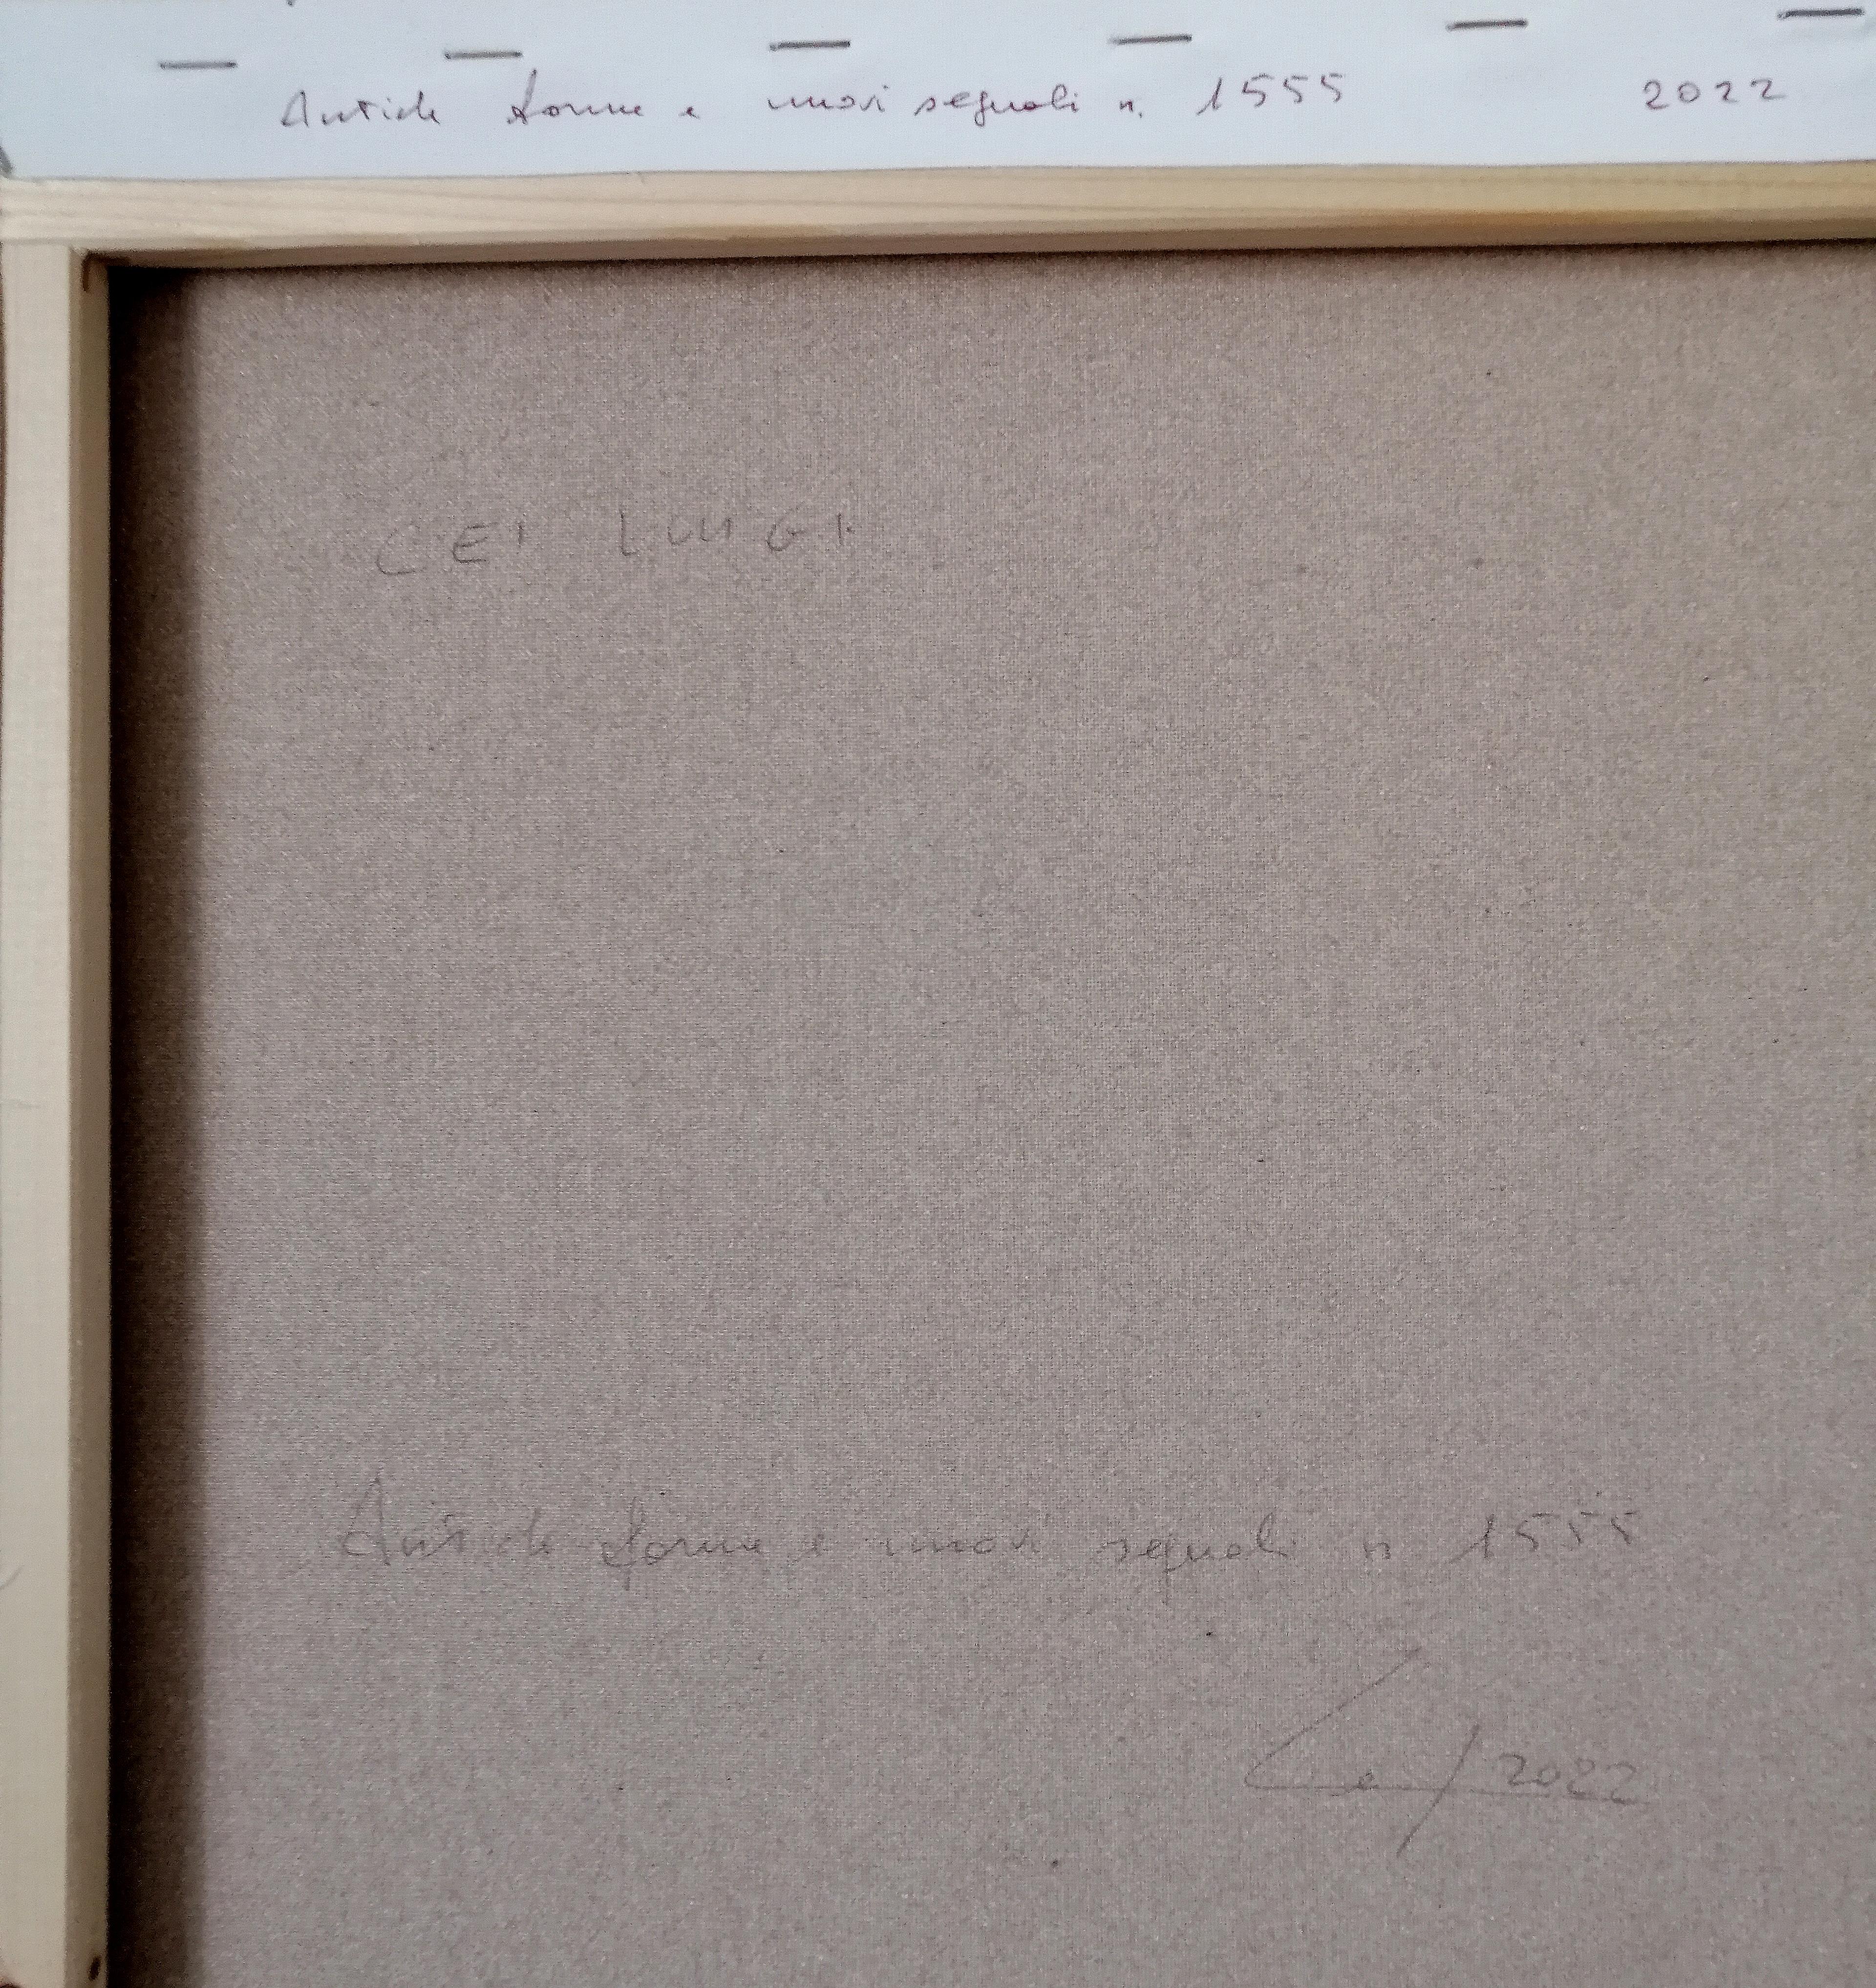 Antiche forme e nuovi segnali n. 1555 2022
CEI LUIGI
Antiche forme e nuovi segnali n 1555
Cei 2022